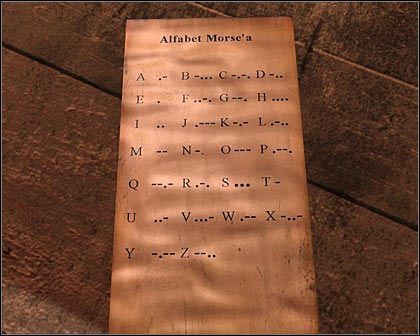 Alfabet Morse'a
A .- B -... C -.-. D -..
E . F ..-. G --. H ....
I .. J .--- K -.- L .-..
M -- N -. O --- P .--.
Q --.- R .-. S ... T -
U ..- V ...- W .-- X -..-
Y -.-- Z --..